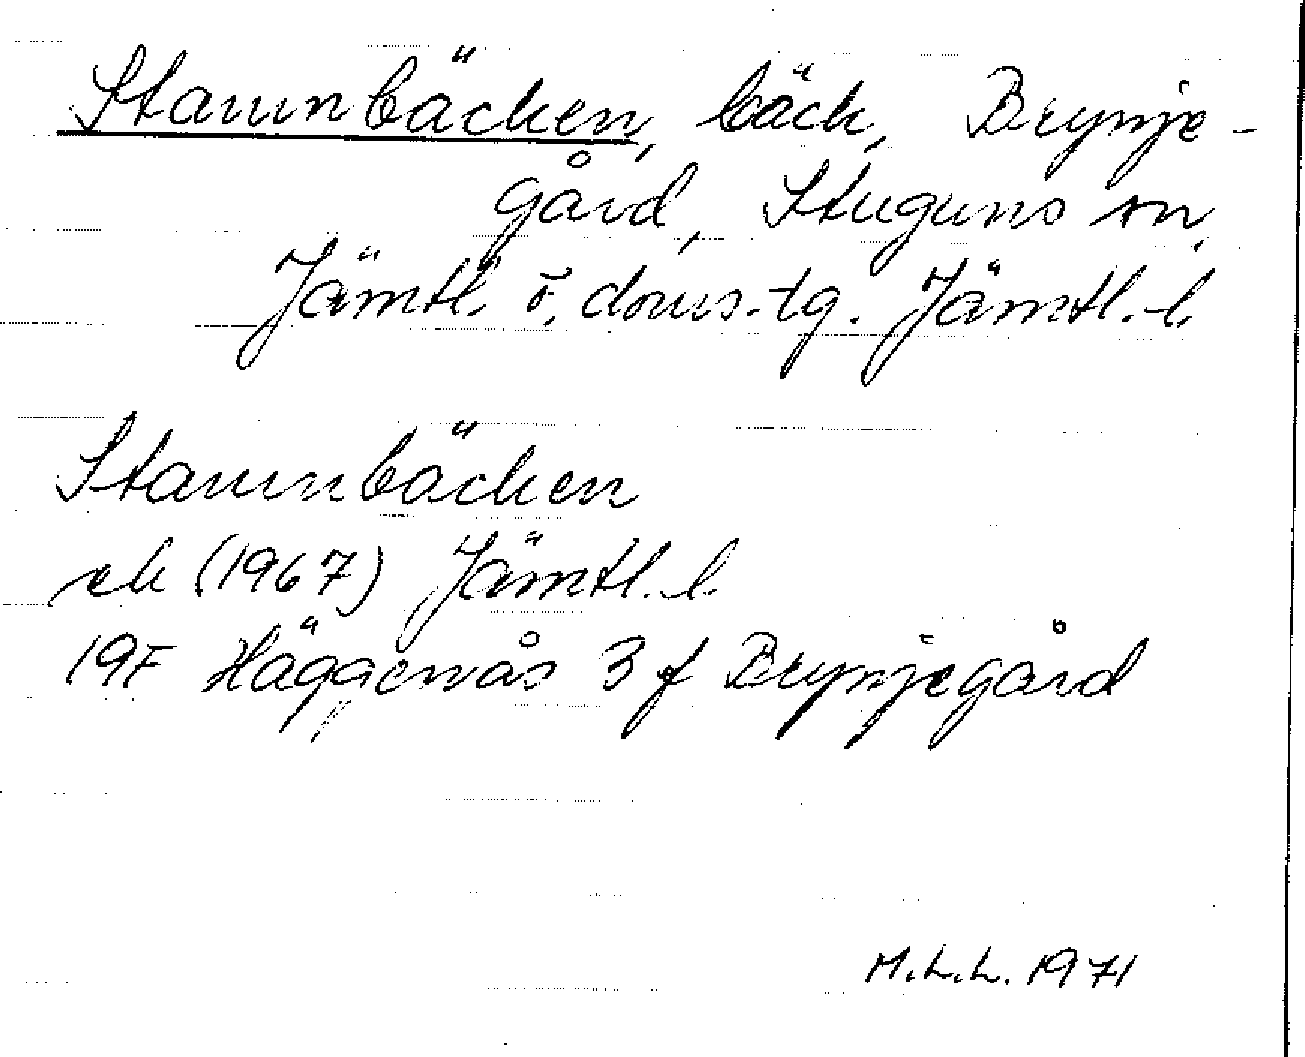 Stavmbäcken, bäck, Brynje-
gård, Stuguns sn,
Jämtl. ö. doms.-tg. Jämtl. l.
Stavmbäcken
ek (1967) Jämtl. l.
19F Häggenås 3 f Brynjegård
M.L.L. 1971